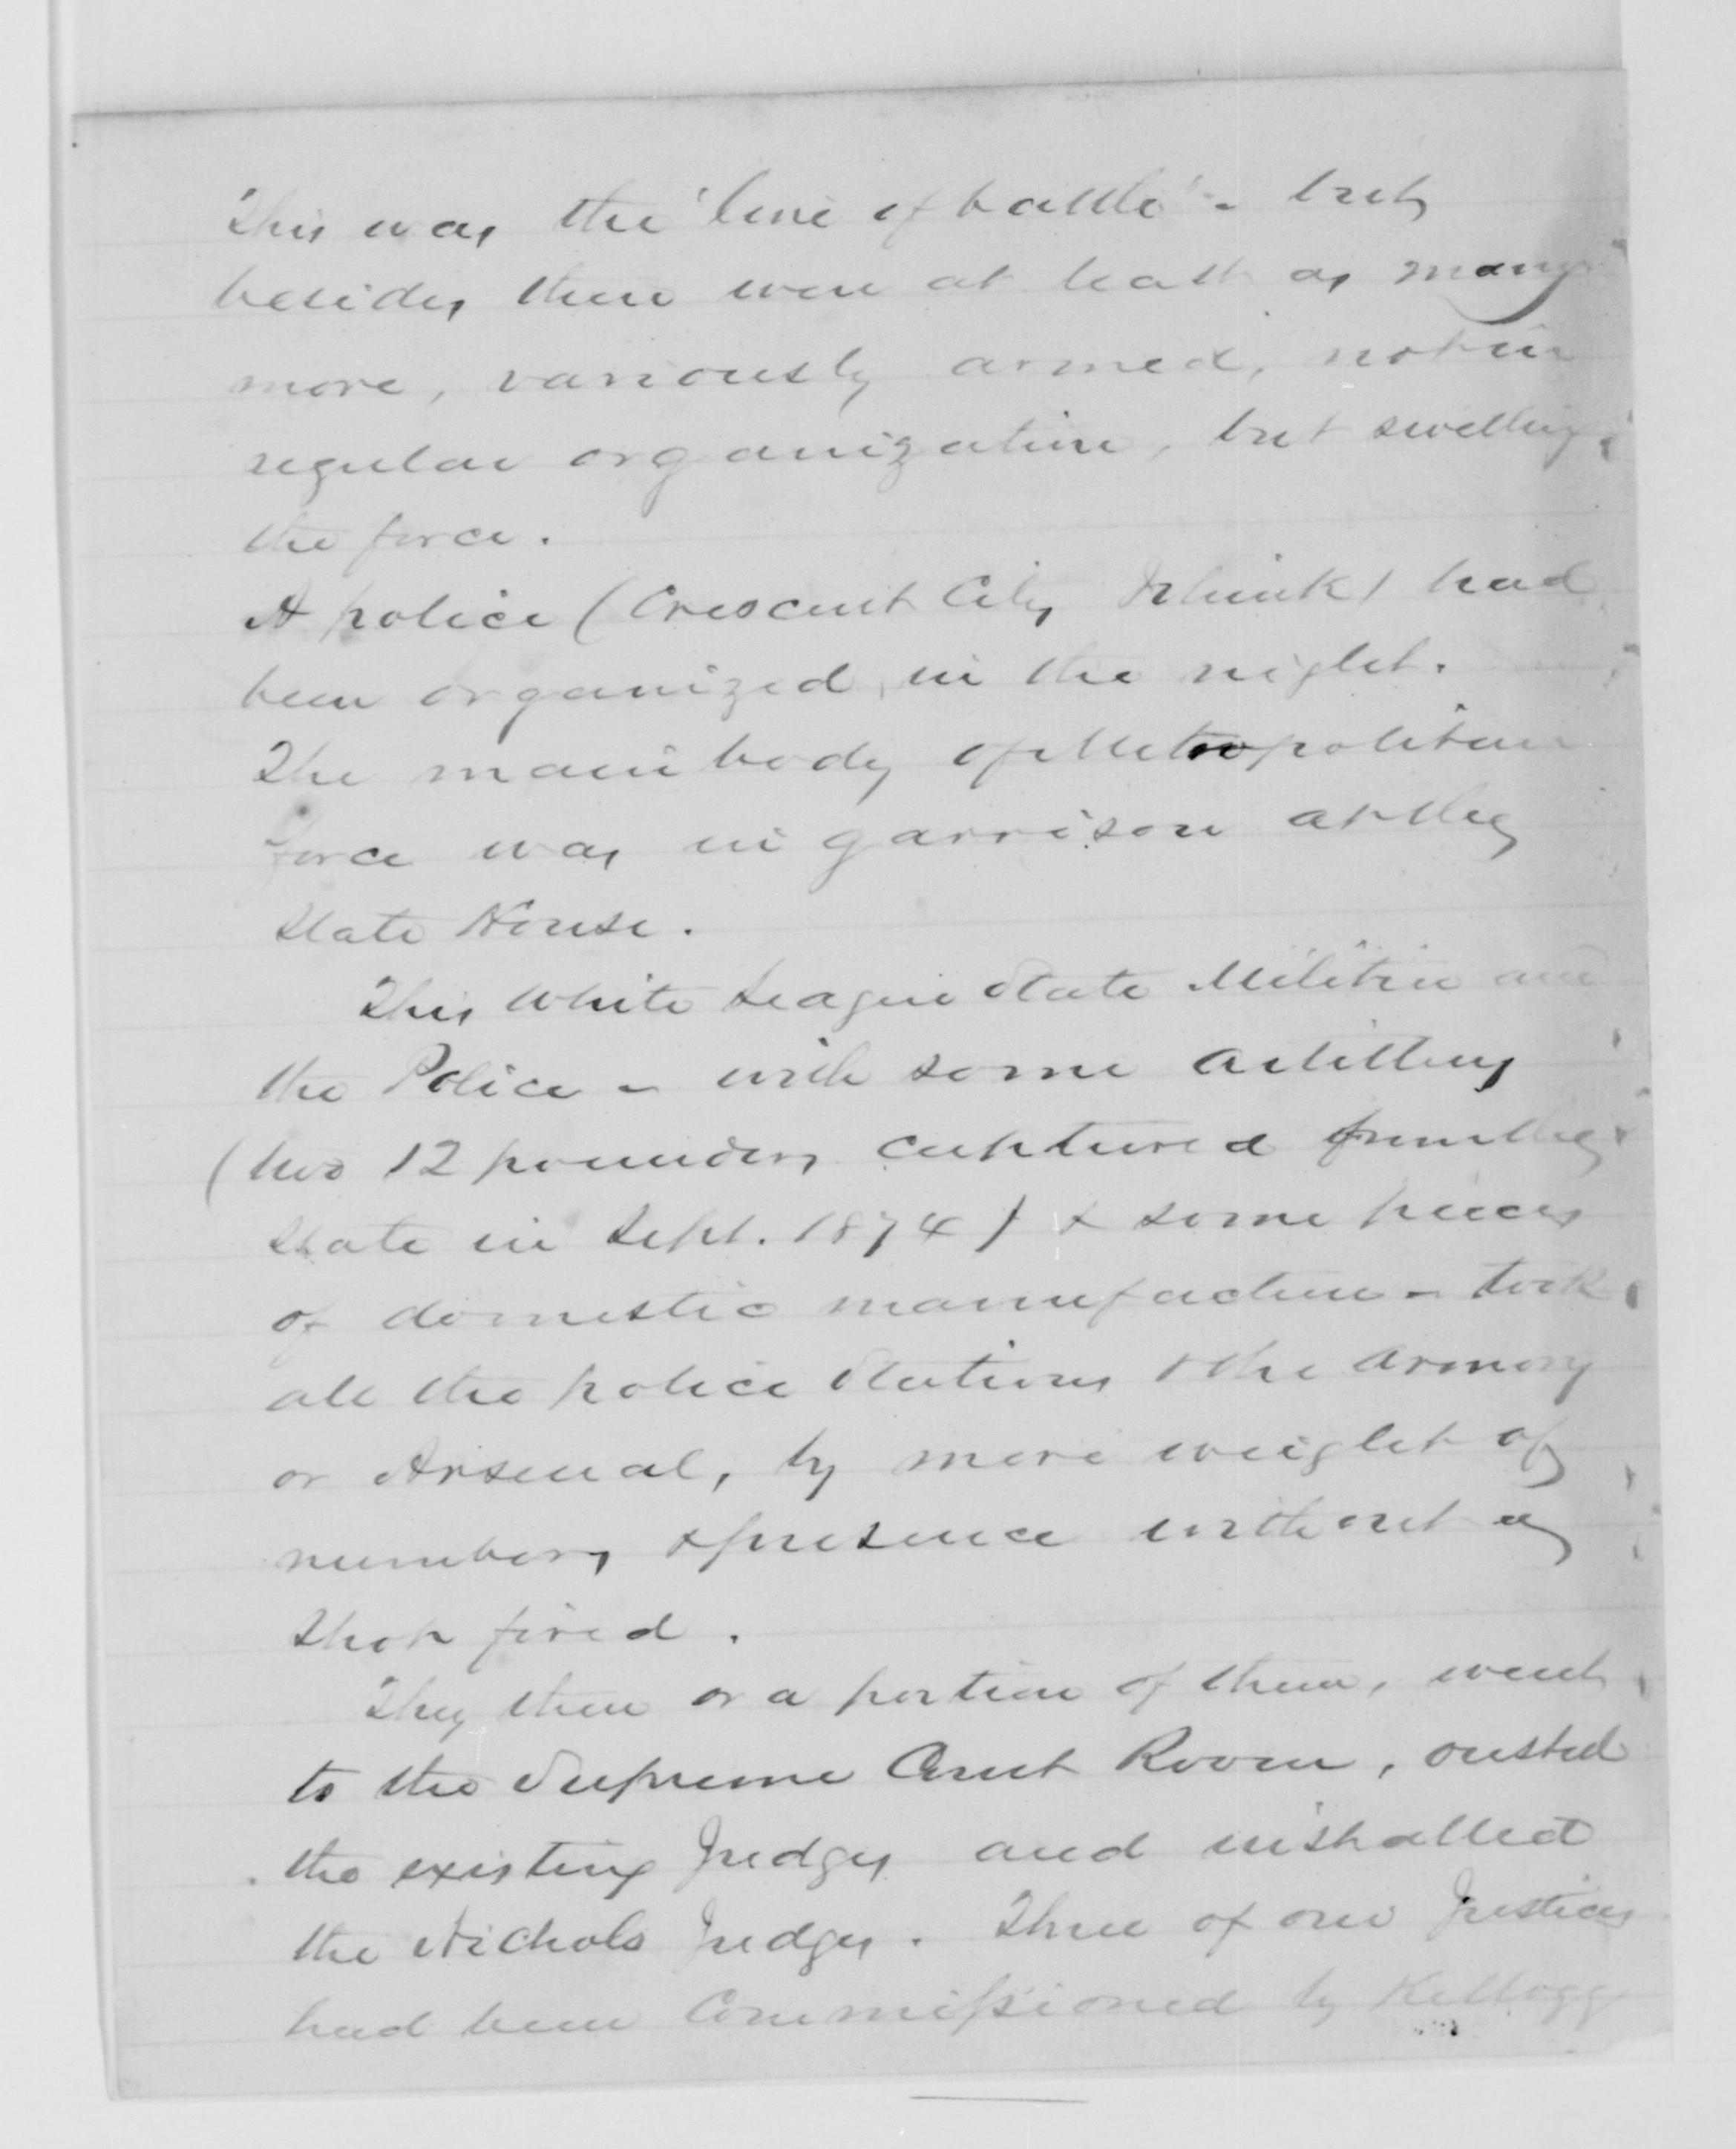 This was the 'line of battle' - but
besides there were at least as many
more, variously armed, not in
regular organization, but swelling
the force.
A police (Crescent City I think) had
been organized, in the night.
The main body of Metropolitan
force was in garrison at the
State House.
This White League State Militia and
the Police - with some artillery
(two 12 pounders captured from the
State in Sept. 1874) & some pieces
of domestic manufacture - took
all the police stations & the armory
or Arsenal, by mere weight of
numbers & presence without a
shot fired.
They then or a portion of them, went
to the Supreme Court Room, ousted
the existing Judges and installed
the Nichols Judges. Three of our Justices
had been Commissioned by Kellogg